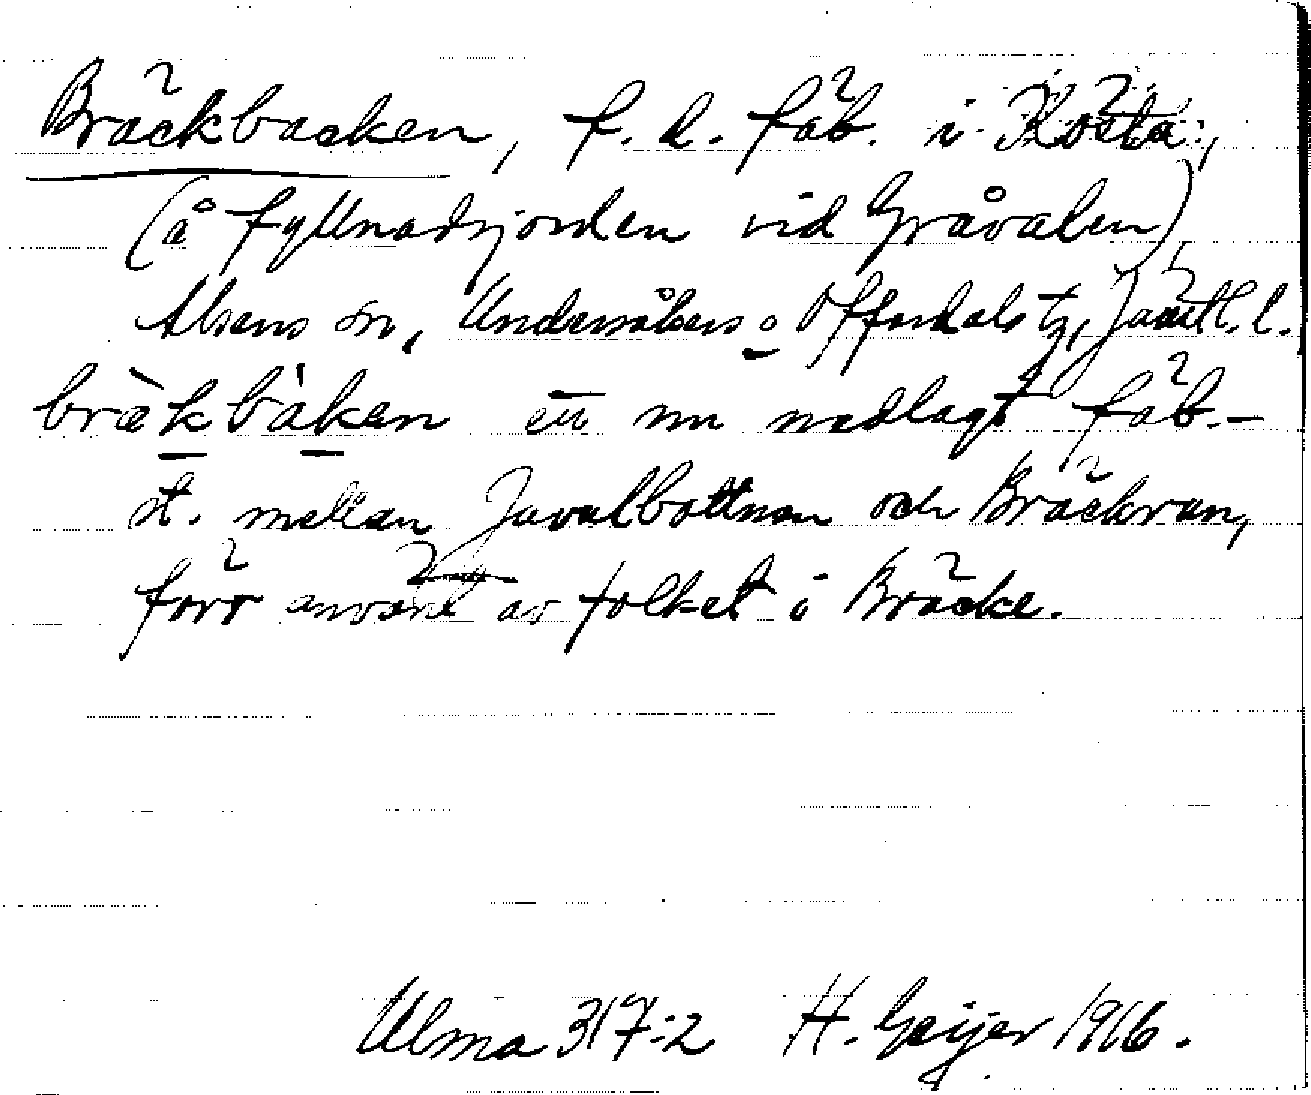 Bräckbacken, f. d. fäb. i Rösta,
(å fyllnadsjorden vid Gråvalen)
Alsens sn, Undersåkers o Offerdals tg, Jämtl. l.
bräkbàken ett nu nedlagt fäb.-
st. mellan Juvulbottnen och Bräckvan,
förr använt av folket i Bräcke.
Ulma 317:2 H. Geijer 1916.